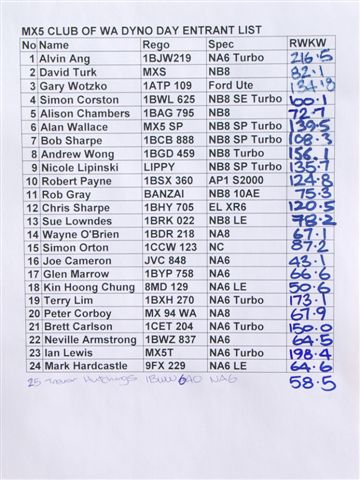 MX5 CLUB OF WA DYNO DAY ENTRANT LIST
No Name Rego Spec RWKW
1 Alvin Ang 1BJW219 NA6 Turbo 216.5
2 David Turk MXS NB8 82.1
3 Gary Wotzko 1ATP 109 Ford Ute 134.8
4 Simon Corston 1BWL 625 NB8 SE Turbo 100.1
5 Alison Chambers 1BAG 795 NB8 72.7
6 Alan Wallace MX5 SP NB8 SP Turbo 139.5
7 Bob Sharpe 1BCB 888 NB8 SP Turbo 108.3
8 Andrew Wong 1BGD 459 NB8 Turbo 156.1
9 Nicole Lipinski LIPPY NB8 SP Turbo 135.7
10 Robert Payne 1BSX 360 AP1 S2000 124.8
11 Rob Gray BANZAI NB8 10AE 75.3
12 Chris Sharpe 1BHY 705 EL XR6 120.5
13 Sue Lowndes 1BRK 022 NB8 LE 78.2
14 Wayne O'Brien 1BDR 218 NA8 67.1
15 Simon Orton 1CCW 123 NC 87.2
16 Joe Cameron JVC 848 NA6 43.1
17 Glen Marrow 1BYP 758 NA6 66.6
18 Kin Hoong Chung 8MD 129 NA6 LE 50.6
19 Terry Lim 1BXH 270 NA6 Turbo 173.1
20 Peter Corboy MX 94 WA NA8 67.9
21 Brett Carlson 1CET 204 NA6 Turbo 150.0
22 Neville Armstrong 1BWZ 837 NA6 64.5
23 Ian Lewis MX5T NA6 Turbo 198.4
24 Mark Hardcastle 9FX 229 NA6 LE 64.6
25 Trevor Hutchings NA6 58.5